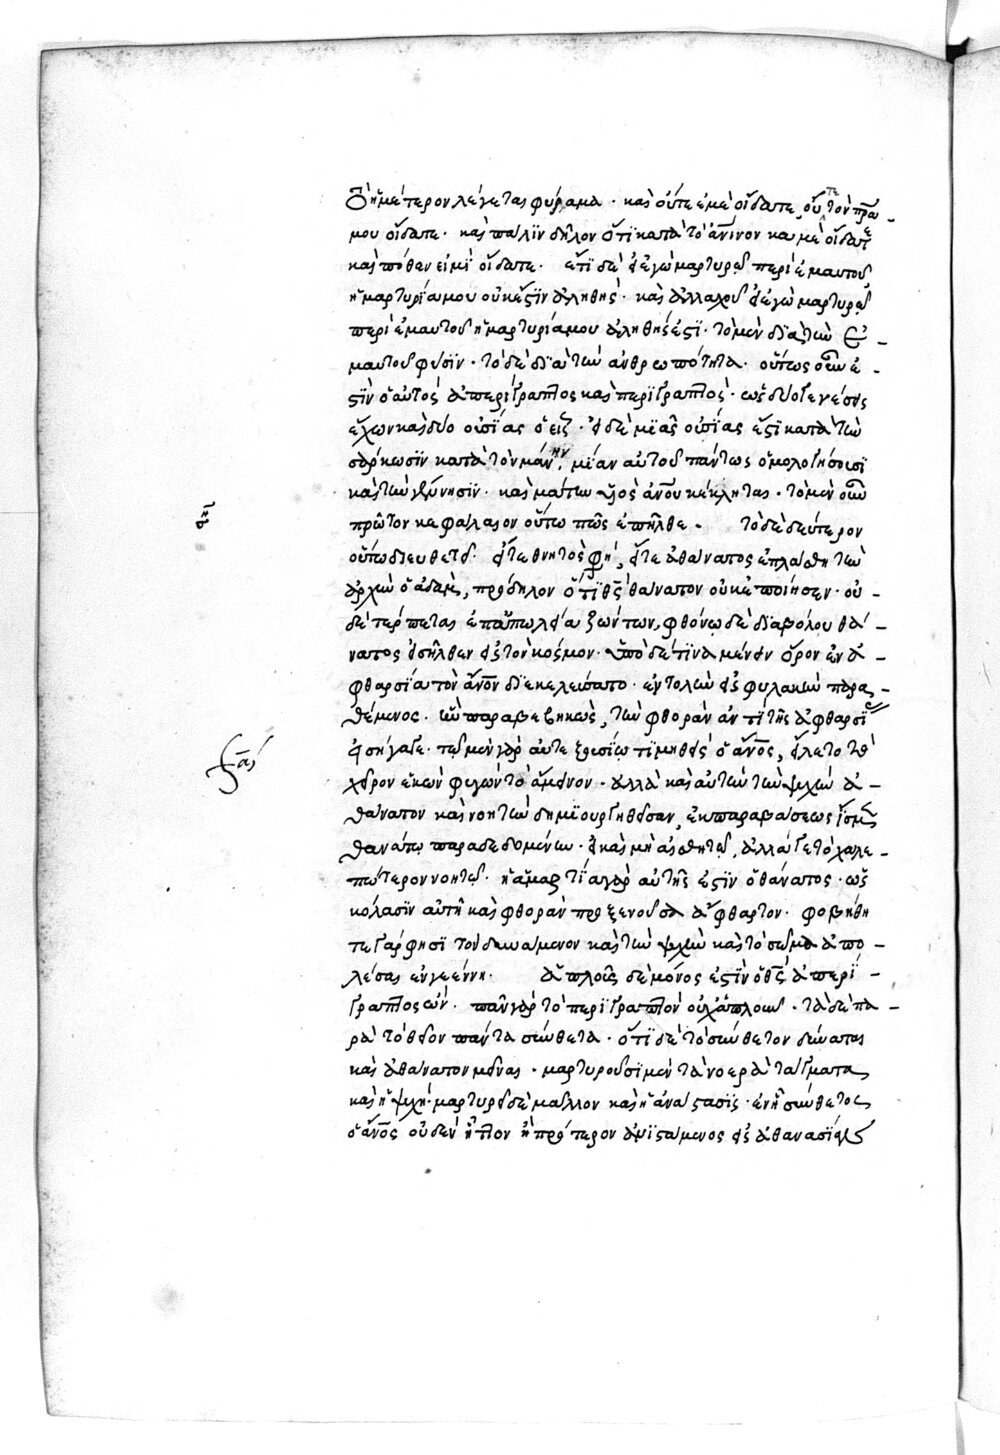 ὃ ἡμέτερον λέγεται φύραμα· καὶ οὔτε ἐμὲ οἴδατε, οὔτε τὸν πρα
μου οἴδατε· καὶ πάλϊν δῆλον ὅτϊ κατὰ τὸ ἀνινον κἀμὲ οἴδατε
καὶ πόθεν εἰμὶ οἴδατε· ἔτϊ δὲ εἰ ἐγὼ μαρτυρῶ περὶ ἐμαυτοῦ
ἡ μαρτυρία μου οὐκ ἔστϊν ἀληθής· καὶ ἀλλαχοῦ εἰ ἐγὼ μαρτυρῶ
περὶ ἐμαυτοῦ ἡ μαρτυρία μου ἀληθής ἐστϊ· τὸ μὲν δϊὰ τὴν ἐ-
μαυτοῦ φύσϊν· τὸ δὲ δϊὰ τὴν ἀνθρωπότητα· οὕτως οὖν ἐ-
στϊν ὁ αὐτὸς ἀπερίγραπτος καὶ περϊγραπτός· ὡς δύο γενέσεις
ἔχων καὶ δύο οὐσίας ὁ εἷς· εἰ δὲ μϊᾶς οὐσίας ἐστϊ κατὰ τὴν
σάρκωσϊν κατὰ τὸν μάνην, μίαν αὐτοῦ πάντως ὁμολογήσουσϊ
καὶ τὴν γέννησϊν· καὶ μάτην υἱὸς ἀνου κέκληται· τὸ μὲν οὖν
πρῶτον κεφάλαιον οὕτω πῶς ἐπῆλθε· τὸ δὲ δεύτερον
οὕτω διευθετεῖ· εἴτε θνητὸς φη, εἴτε ἀθάνατος ἐπλάσθη τὴν
ἀρχὴν ὁ ἀδὰμ, πρόδηλον ὅτϊ θς θάνατον οὐκ ἐποίησεν· οὐ-
δὲ τέρπεται ἐπ' ἀπωλεία ζώντων, φθόνω δὲ δϊαβόλου θά-
νατος εἰσῆλθεν εἰς τὸν κόσμον· ὑπὸ δέ τϊνα μένειν ὅρον ἐν ἀ-
φθαρσία τὸν ἀνον δϊεκελεύσατο· ἐντολὴν εἰς φυλακὴν παρα-
θέμενος· ἣν παραβεβηκὼς, τὴν φθορὰν ἀντὶ τῆς ἀφθαρσίας
εἰσήγαγε· τῷ μὲν γὰρ αὐτεξουσίω τϊμηθεὶς ὁ ἀνος, εἵλετο τὸ
χεῖρον ἑκὼν φυγὼν τὸ ἄμεινον· ἀλλὰ καὶ αὐτὴν τὴν ψυχὴν ἀ-
θάνατον καὶ νοητὴν δημϊουργηθεῖσαν, ἐκ παραβάσεως ἴσμεν
θανάτῳ παραδεδομένην· εἰ καὶ μὴ αἰσθητῶ, ἀλλά γε τὸ χαλε-
πώτερον νοητῶ· ἡ ἁμαρτία γὰρ αὐτῆς ἐστϊν ὁ θάνατος· ὡς
κόλασϊν αὐτῆ καὶ φθορὰν προξενοῦσα ἄφθαρτον· φοβήθη
τε γάρ φησϊ τὸν δυνάμενον καὶ τὴν ψυχὴν καὶ τὸ σῶμα ἀπο-
λέσαι ἐν γεέννη· ἁπλοῦς δὲ μόνος ἐστὶν ὁ θς ἀπερί-
γραπτος ὤν· πᾶν γὰρ τὸ περϊγραπτὸν οὐχ ἁπλοῦν· τὰ δὲ πα-
ρὰ τὸ θεῖον πάντα σύνθετα· ὅτϊ δὲ τὸ σύνθετον δύναται
καὶ ἀθάνατον μεῖναι· μαρτυροῦσϊ μὲν τὰ νοερὰ τάγματα
καὶ ἡ ψυχή· μαρτυρεῖ δὲ μᾶλλον καὶ ἡ ἀνάστασϊς· ἐν ἧ σύνθετος
ὁ ἀνος οὐδὲν ἧττον ἢ πρότερον ἀνϊστάμενος εἰς ἀθανασίαν